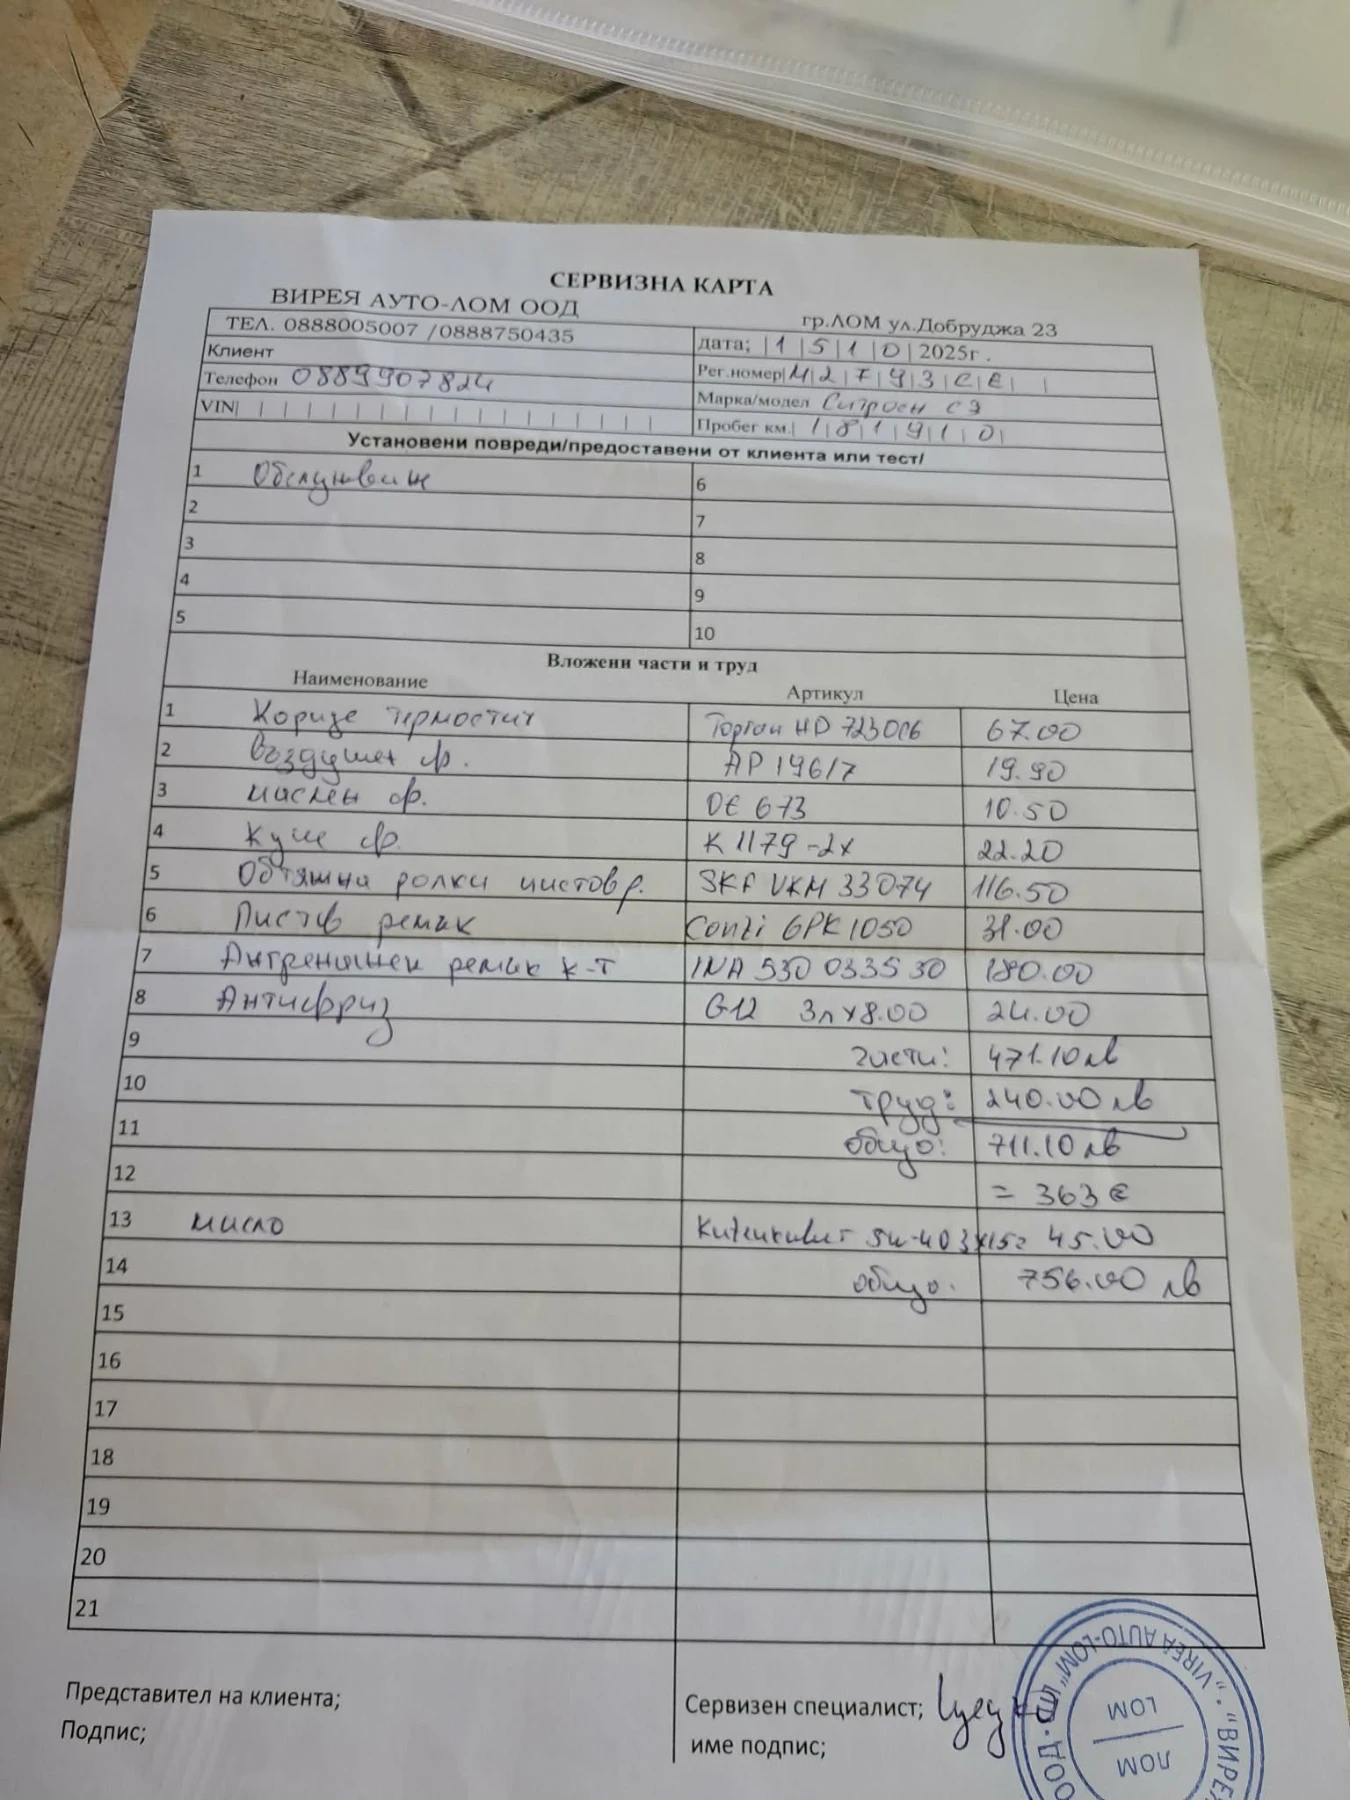 СЕРВИЗНА КАРТА
ВИРЕЯ АУТО-ЛОМ ООД гр.ЛОМ ул.Добруджа 23
ТЕЛ. 0888005007 /0888750435 дата; |1|5|1|0| 2025г.
Клиент Рег.номер|М|2|7|9|3|С|Е| | |
Телефон 0889907824 Марка/модел Ситроен с3
VIN| Пробег км.| 1|8|1|9|1|0|
Установени повреди/предоставени от клиента или тест/
1 Обслужване 6
2 7
3 8
4 9
5 10
Вложени части и труд
Наименование Артикул Цена
1 термостат HD 67.00
2 Въздушен ф. AP 196/7 19.90
3 маслен ф. OE 673 10.50
4 Купе ф. K 1179-2x 22.20
5 Обтяжна ролки пистов р. SKF VKM 33074 116.50
6 Пистов ремък Conti 6PK1050 31.00
7 Ангренажен ремък к-т INA 530 0335 30 180.00
8 Антифриз G12 3л x 8.00 24.00
9 части: 471.10 лв
10 труд: 240.00 лв
11 общо: 711.10 лв
12 = 363 €
13 масло 5w-40 3x15= 45.00
14 общо. 756.00 лв
15
16
17
18
19
20
21
Представител на клиента; Сервизен специалист;
Подпис; име подпис;
"VIREA AUTO-LOM" LTD
LOM
ЛОМ